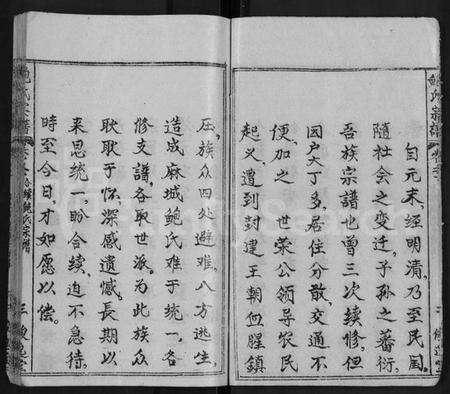 鮑氏宗譜
自元末、經明清、乃至民国、
隨社会之变迁、子孫之蕃衍、
吾族宗譜也曾三次續修。但
因户大丁多、居住分散、交通不
便、加之 世荣公領导农民
起义、遭到封建王朝血腥鎮
压、族众四处避难、八方逃生、
造成麻城鲍氏难于统一。各
修支譜、各取世派、为此族众
耿耿于怀、深感遺憾、長期以
来思统一、盼合續、迫不急待。
時至今日、才如愿以償。